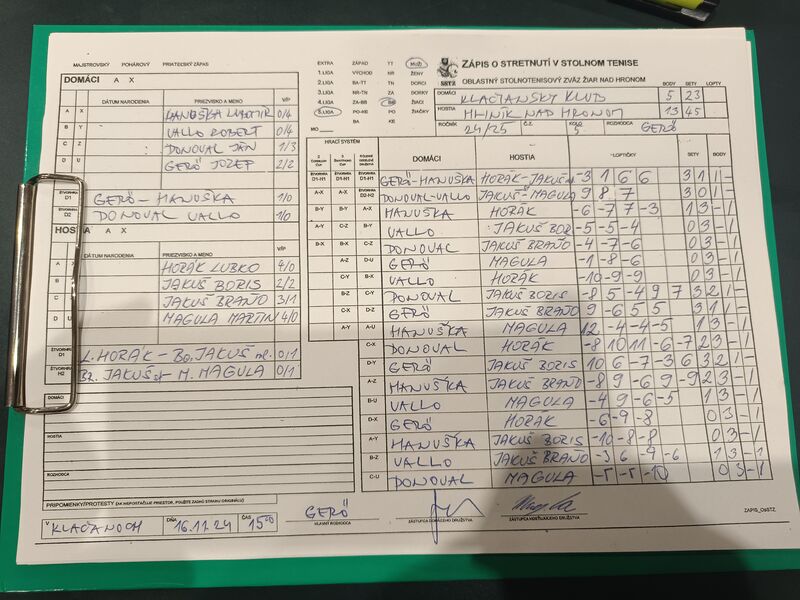 MAJSTROVSKÝ POHÁROVÝ PRIATEĽSKÝ ZÁPAS
DOMÁCI A X
DÁTUM NARODENIA PRIEZVISKO A MENO V/P
A X HANUŠKA ĽUBOMIR 0/4
B Y VALLO RÓBERT 0/4
C Z DONOVAL JÁN 1/3
D U GERÖ JOZEF 2/2
ŠTVORHRA D1 GERÖ - HANUŠKA 1/0
ŠTVORHRA D2 DONOVAL VALLO 1/0
HOSTIA A X
DÁTUM NARODENIA PRIEZVISKO A MENO V/P
A X HORÁK ĽUBKO 4/0
B Y JAKUŠ BORIS 2/2
C JAKUŠ BRAŇO 3/1
D U MAGULA MARTIN 4/0
ŠTVORHRA D1 Ľ. HORÁK - Bo. JAKUŠ ml. 0/1
ŠTVORHRA H2 Br. JAKUŠ st - M. MAGULA 0/1
DOMÁCI
HOSTIA
ROZHODCA
PRIPOMIENKY/PROTESTY (AK NEPOSTAČUJE PRIESTOR, POUŽITE ZADNÚ STRANU ORIGINÁLU)
V KĽAČANOCH DŇA 16.11.24 ČAS 15°°
EXTRA ZÁPAD TT MUŽI
1.LIGA VÝCHOD NR ŽENY
2.LIGA BA-TT TN DORCI
3.LIGA NR-TN ZA DORKY
4.LIGA ZA-BB BB ŽIACI
5.LIGA PO-KE PO ŽIAČKY
BA KE
MO
SSTZ
ZÁPIS O STRETNUTÍ V STOLNOM TENISE
OBLASTNÝ STOLNOTENISOVÝ ZVÄZ ŽIAR NAD HRONOM
BODY SETY LOPTY
DOMÁCI KĽAČIANSKY KLUB 5 23
HOSTIA HLINÍK NAD HRONOM 13 45
ROČNÍK 24/25 Č.Z. KOLO 5 ROZHODCA GERÖ
HRACÍ SYSTÉM
DOMÁCI HOSTIA LOPTIČKY SETY BODY
D1-H1 D1-H1 D1-H1 GERÖ-HANUŠKA HORÁK-JAKUŠ ml -3 1 6 6 3 1 1 -
A-X A-X D2-H2 DONOVAL-VALLO JAKUŠ-MAGULA 9 8 7 3 0 1 -
B-Y B-Y A-X HANUŠKA HORÁK -6 -7 7 -3 1 3 - 1
A-Y C-Z B-Y VALLO JAKUŠ BOR -5 -5 -4 0 3 - 1
B-X B-X C-Z DONOVAL JAKUŠ BRAŇO -4 -7 -6 0 3 - 1
A-Z D-U GERÖ MAGULA -1 -8 -6 0 3 - 1
C-Y B-X VALLO HORÁK -10 -9 -9 0 3 - 1
B-Z C-Y DONOVAL JAKUŠ BORIS -8 5 -4 9 7 3 2 1 -
C-X D-Z GERÖ JAKUŠ BRAŇO 9 -6 5 5 3 1 1 -
A-Y A-U HANUŠKA MAGULA 12 -4 -4 -5 1 3 - 1
C-X DONOVAL HORÁK -8 10 11 -6 -7 2 3 - 1
D-Y GERÖ JAKUŠ BORIS 10 6 -7 -3 6 3 2 1 -
A-Z HANUŠKA JAKUŠ BRAŇO -8 9 -6 9 -9 2 3 - 1
B-U VALLO MAGULA -4 9 -6 -5 1 3 - 1
D-X GERÖ HORÁK -6 -9 -8 0 3 - 1
A-Y HANUŠKA JAKUŠ BORIS -10 -8 -8 0 3 - 1
B-Z VALLO JAKUŠ BRAŇO -3 6 -9 -6 1 3 - 1
C-U DONOVAL MAGULA -5 -5 -10 0 3 - 1
GERÖ
HLAVNÝ ROZHODCA ZÁSTUPCA DOMÁCEHO DRUŽSTVA ZÁSTUPCA HOSŤUJÚCEHO DRUŽSTVA
ZÁPIS_OSSTZ